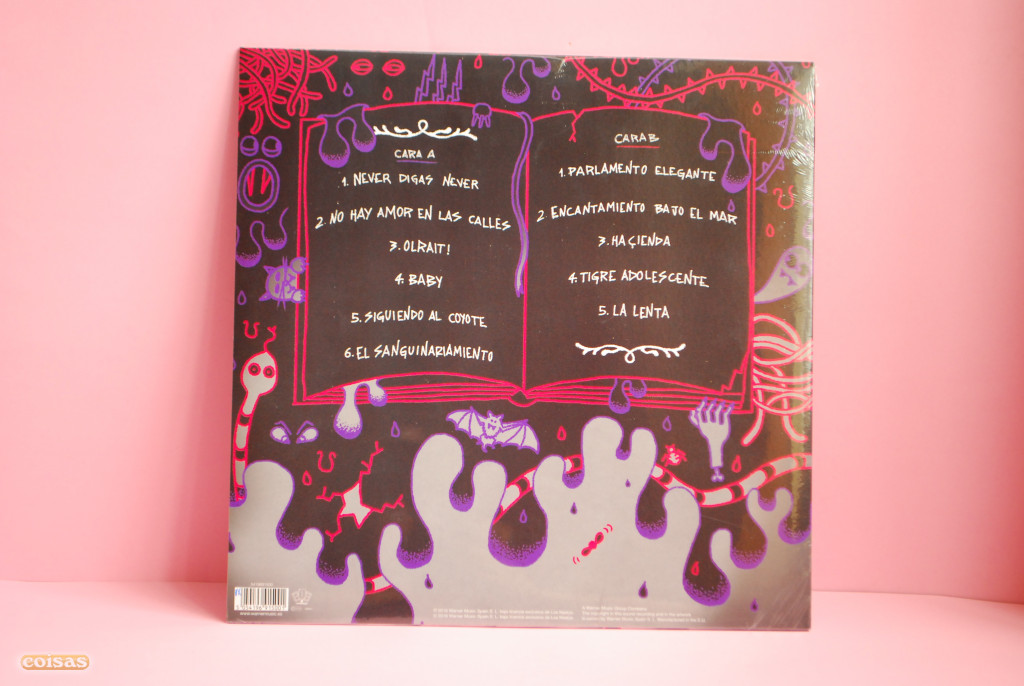 CARA A
1. NEVER DIGAS NEVER
2. NO HAY AMOR EN LAS CALLES
3. OLRAIT!
4. BABY
5. SIGUIENDO AL COYOTE
6. EL SANGUINARIAMIENTO
CARA B
1. PARLAMENTO ELEGANTE
2. ENCANTAMIENTO BAJO EL MAR
3. HAÇIENDA
4. TIGRE ADOLESCENTE
5. LA LENTA
coisas